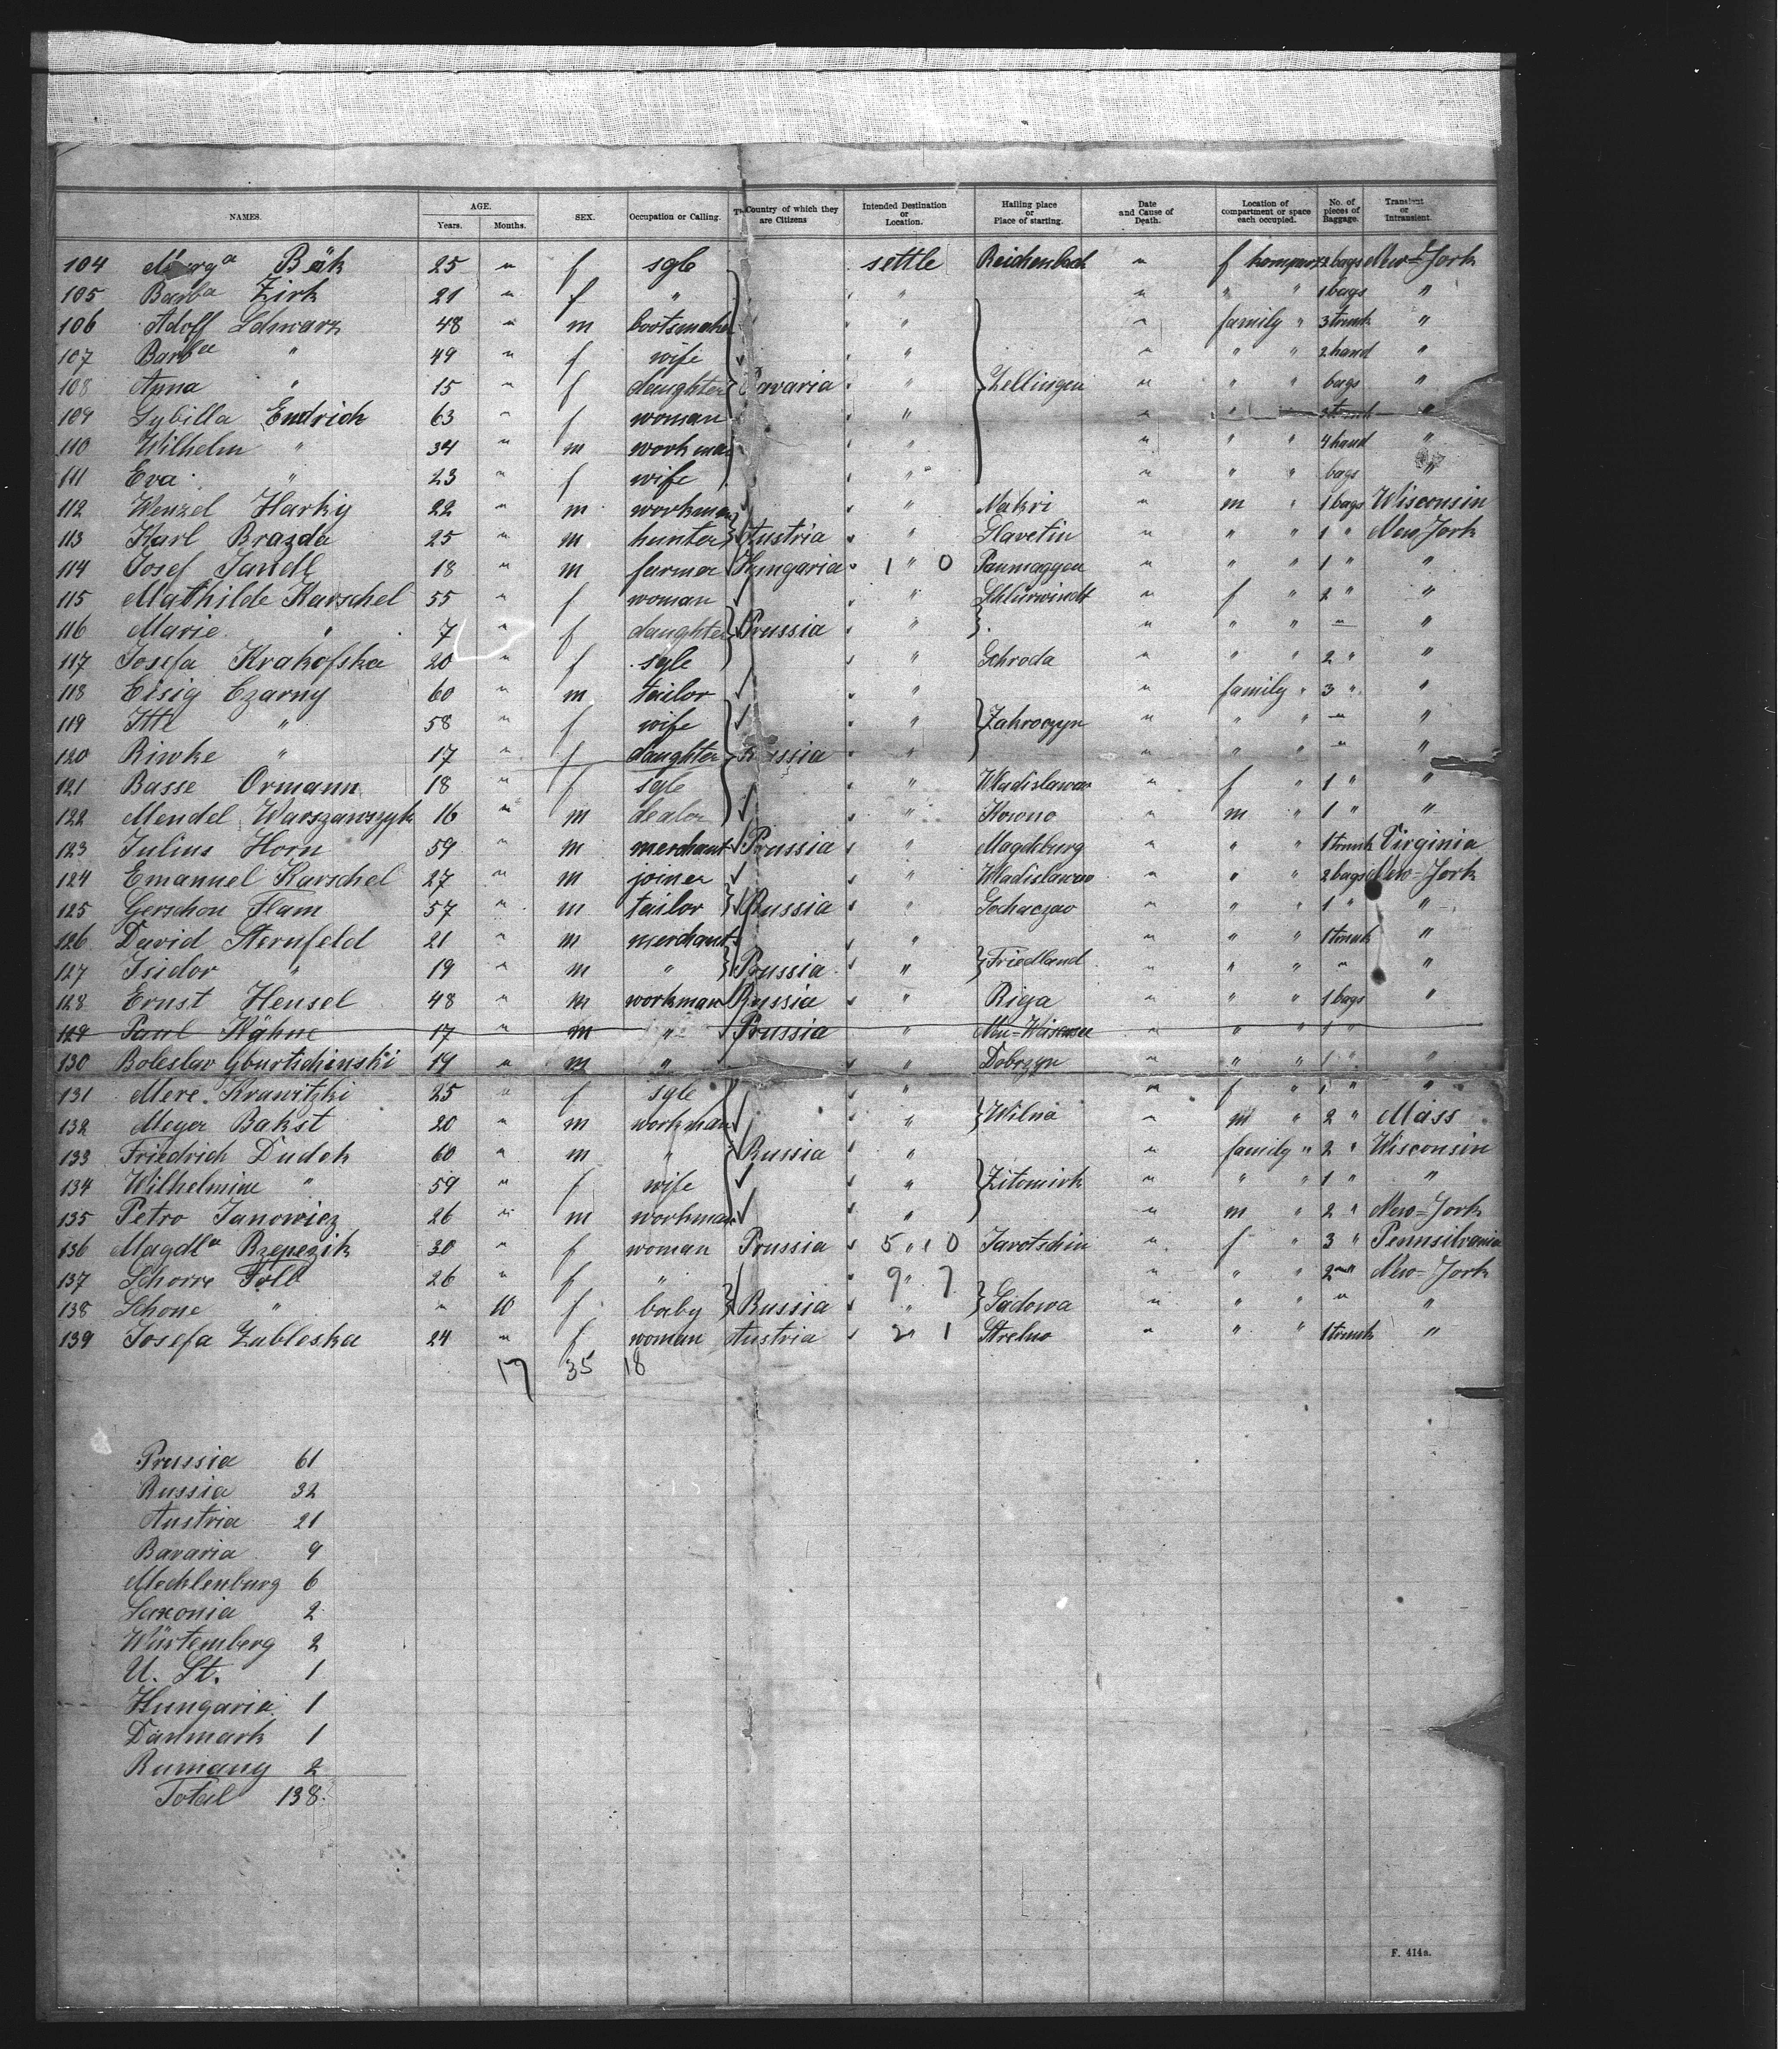 NAMES. AGE. Years. Months. SEX. Occupation or Calling. Country of which they are Citizens Intended Destination or Location. Hailing place or Place of starting. Date and Cause of Death. Location of compartment or space each occupied. No. of pieces of Baggage. Transient or Intransient.
104 Marga Bäk 25 " f sgle settle Reichenbach " f 2 bags New-York
105 Barba Zirk 21 " f " " " " " 1 bags "
106 Adolf Schwarz 48 " m bootsmaker " " family " 3 trunk "
107 Barba " 49 " f wife " " " " 2 hand "
108 Anna " 15 " f daughter Bavaria " Zellingen " " " bags "
109 Sybilla Endrich 63 " f woman " " " " 3 trunk "
110 Wilhelm " 34 " m workman " " " " 4 hand "
111 Eva " 23 " f wife " " " " bags "
112 Wenzel Harky 22 " m workman " Makri " m " 1 bags Wisconsin
113 Karl Brazda 25 " m hunter Austria " Glavetin " " " 1 " New York
114 Josef Jandl 18 " m farmer Hungaria 1 " 0 " " " 1 " "
115 Mathilde Karschel 55 " f woman " " f " 2 " "
116 Marie " 7 " f daughter Prussia " " " " " "
117 Josefa Krakofska 20 " f sgle " Schroda " " " 2 " "
118 Eisig Czarny 60 " m tailor " " family " 3 " "
119 Itte " 58 " f wife " Zakroczyn " " " " "
120 Riwke " 17 " f daughter Russia " " " " " "
121 Basse Ormann 18 " f sgle " Wladislawow " f " 1 " "
122 Mendel Warszawszyk 16 " m dealer " Kowno " m " 1 " "
123 Julius Horn 59 " m merchant Prussia " Magdeburg " " " 1 trunk Virginia
124 Emanuel Karschel 27 " m joiner " Wladislawow " " " 2 bags New-York
125 Gerschon Flam 57 " m tailor Russia " Sochaczao " " " 1 " "
126 David Sternfeld 21 " m merchant " " " " 1 trunk "
127 Isidor " 19 " m " Prussia " Friedland " " " " "
128 Ernst Hensel 48 " m workman Russia " Riga " " " 1 bags "
129 Paul Kähne 17 " m " Prussia " Neu-Weissensee " " " 1 "
130 Boleslav Gburtschinski 19 " m " " Dobrzyn " " " 1 " "
131 Mere Krawitzki 25 " f sgle " " f " 1 " "
132 Meyer Bakst 20 " m workman " Wilna " m " 2 " Mass
133 Friedrich Dudek 60 " m " Russia " " family " 2 " Wisconsin
134 Wilhelmine " 59 " f wife " Zitomirk " " " 1 " "
135 Petro Janowicz 26 " m workman " " m " 2 " New-York
136 Magdla Rzepezik 30 " f woman Prussia 5 " 10 Jarotschin " f " 3 " Pennsilvania
137 Schorre Foll 26 " f " 9 " 7 " " " 2 " New-York
138 Schone " " 10 f baby Russia " Sadowa " " " " "
139 Josefa Zubloska 24 " f woman Austria 2 " 1 Strelno " " " 1 trunk "
17 35 18
Prussia 61
Russia 32
Austria 21
Bavaria 9
Mecklenburg 6
Saxonia 2
Würtemberg 2
U. St. 1
Hungaria 1
Dänmark 1
Rumany 2
Total 138.
F. 414a.